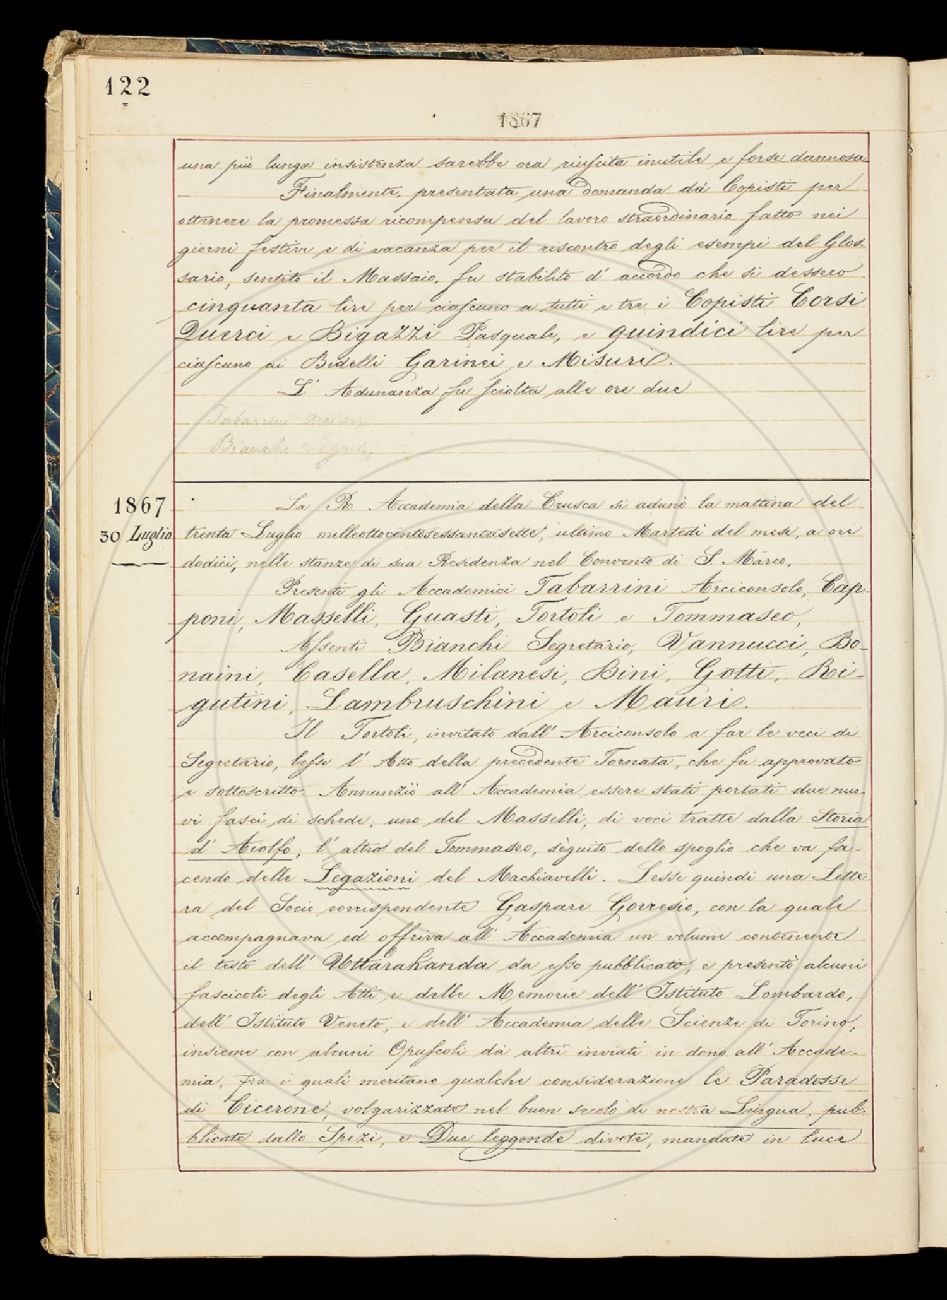 122
1867
una più lunga insistenza sarebbe ora riuscita inutile e forse dannosa.
Finalmente, presentata una domanda di Copisti per
ottenere la promessa ricompensa del lavoro straordinario fatto nei
giorni festivi e di vacanza per il riscontro degli esempi del Glos-
sario, sentito il Massaio, fu stabilito d' accordo che si dessero
cinquanta lire per ciascuno a tutti e tre i Copisti Corsi
Querci e Bigazzi Pasquale, e quindici lire per
ciascuno ai Bidelli Garinei e Misuri.
L' Adunanza fu sciolta alle ore due
Tabarrini Arciconsolo
Bianchi Segret.
1867
30 Luglio
La R. Accademia della Crusca si adunò la mattina del
trenta Luglio milleottocentosessantasette, ultimo Martedì del mese, a ore
dodici, nelle stanze di sua Residenza nel Convento di S. Marco.
Presenti gli Accademici Tabarrini Arciconsolo, Cap-
poni, Masselli, Guasti, Tortoli e Tommaseo,
Assenti Bianchi Segretario, Vannucci, Bo-
naini, Casella, Milanesi, Bini, Gotti, Ri-
gutini, Lambruschini e Mauri.
Il Tortoli, invitato dall' Arciconsolo a far le veci di
Segretario, lesse l' Atto della precedente Tornata, che fu approvato
e sottoscritto. Annunziò all' Accademia essere stati portati due nuo-
vi fasci di schede, uno del Masselli, di voci tratte dalla Storia
d' Aiolfo, l' altro del Tommaseo, sèguito dello spoglio che va fa-
cendo delle Legazioni del Machiavelli. Lesse quindi una Lette-
ra del Socio corrispondente Gaspare Gorresio, con la quale
accompagnava ed offriva all' Accademia un volume contenente
il testo dell' Uttarakanda da esso pubblicato, e presentò alcuni
fascicoli degli Atti e delle Memorie dell' Istituto Lombardo,
dell' Istituto Veneto, e dell' Accademia delle Scienze di Torino,
insieme con alcuni Opuscoli da altri inviati in dono all' Accade-
mia, fra i quali meritano qualche considerazione le Paradosse
di Cicerone, volgarizzate nel buon secolo di nostra Lingua, pub-
blicate dallo Spezi, e Due leggende divote, mandate in luce